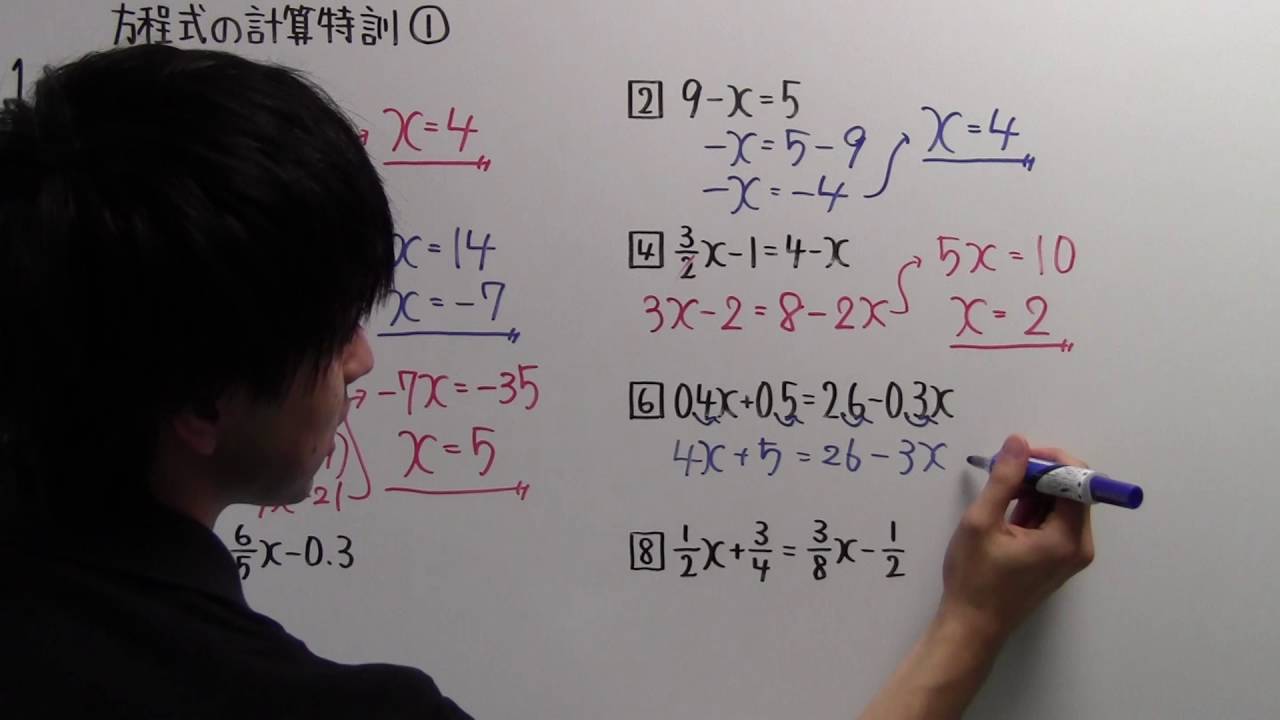 方程式の計算特訓①
1
x=4
x=14
x=-7
-7x=-35
x=5
21
6/5x-0.3
2 9-x=5
-x=5-9
-x=-4
x=4
4 3/2x-1=4-x
3x-2=8-2x
5x=10
x=2
6 0.4x+0.5=2.6-0.3x
4x+5=26-3x
8 1/2x+3/4=3/8x-1/2